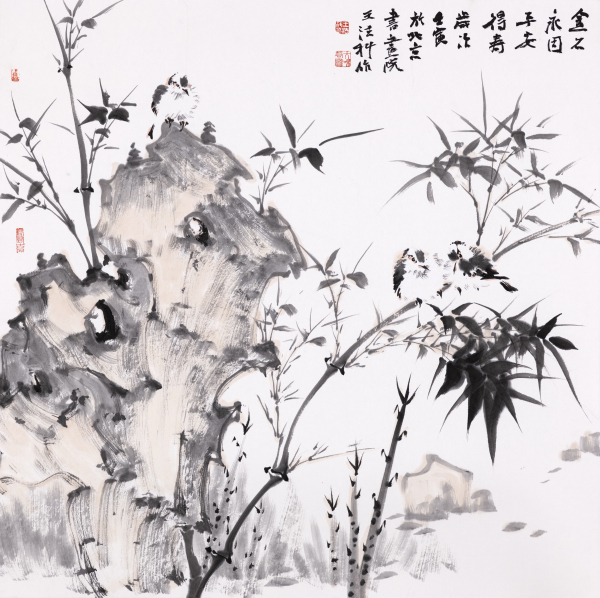 金石
永固
平安
得寿
歲次
壬寅
於北京
書畫院
王法科作